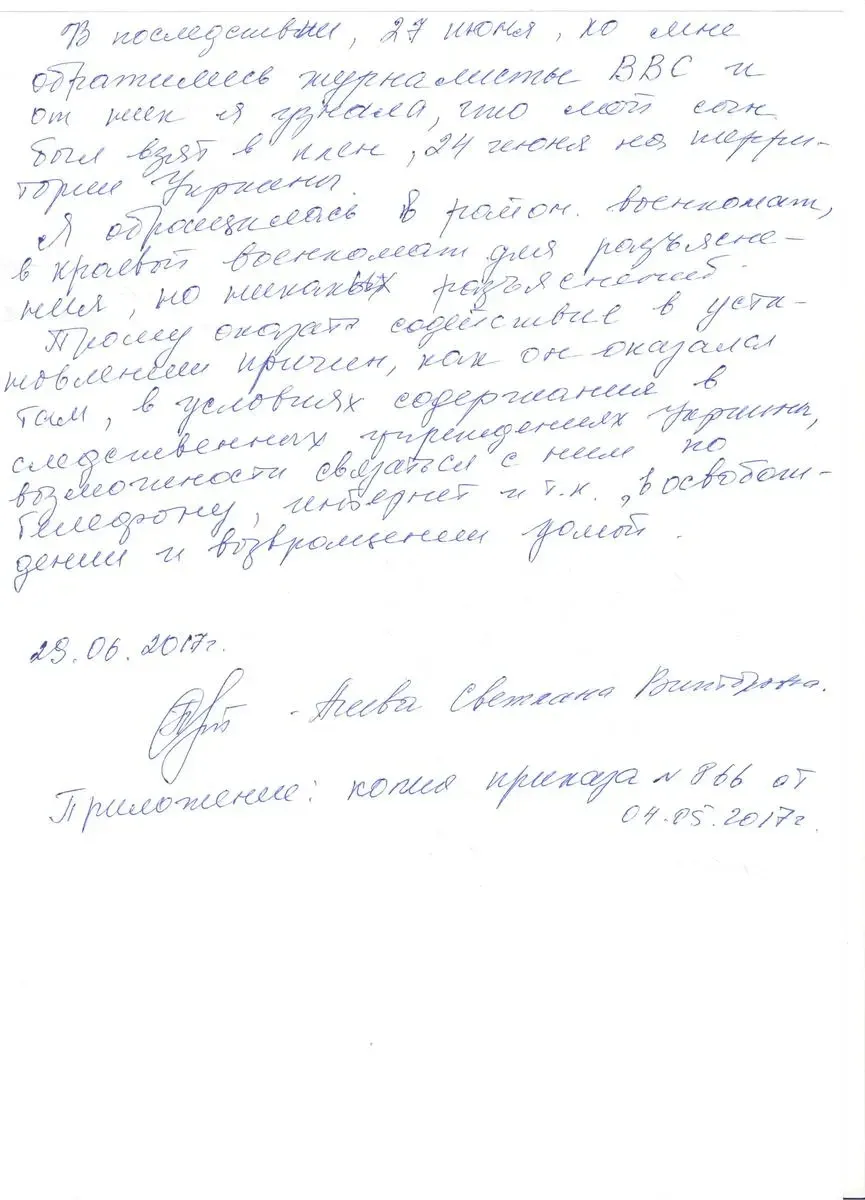 В последствии, 27 июня, ко мне
обратились журналисты BBC и
от них я узнала, что мой сын
был взят в плен, 24 июня на терри-
тории Украины.
Я обратилась в район. военкомат,
в краевой военкомат для разъясне-
ния, но никаких разъяснений.
Прошу оказать содействие в уста-
новлении причин, как он оказался
там, в условиях содержания в
следственных учреждениях Украины,
возможности связаться с ним по
телефону, интернет и т.к., в освобож-
дении и возвращении домой.
29.06.2017г.
- Агеева Светлана Викторовна.
Приложение: копия приказа № 866 от
04.05.2017г.